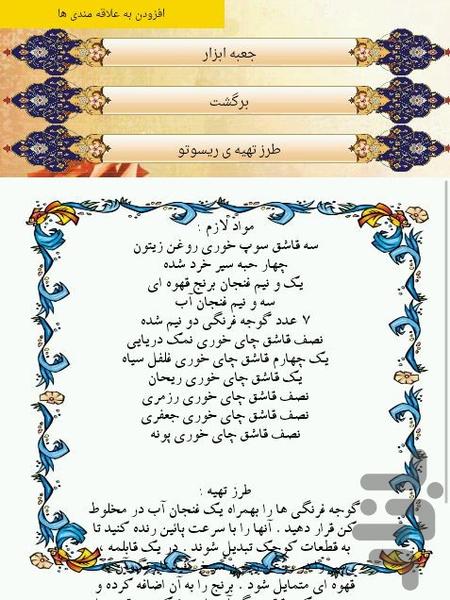 افزودن به علاقه مندی ها
جعبه ابزار
برگشت
طرز تهیه ی ریسوتو
مواد لازم :
سه قاشق سوپ خوری روغن زیتون
چهار حبه سیر خرد شده
یک و نیم فنجان برنج قهوه ای
سه و نیم فنجان آب
۷ عدد گوجه فرنگی دو نیم شده
نصف قاشق چای خوری نمک دریایی
یک چهارم قاشق چای خوری فلفل سیاه
یک قاشق چای خوری ریحان
نصف قاشق چای خوری رزمری
نصف قاشق چای خوری جعفری
نصف قاشق چای خوری پونه
طرز تهیه :
گوجه فرنگی ها را بهمراه یک فنجان آب در مخلوط
کن قرار دهید . آنها را با سرعت پائین رنده کنید تا
به قطعات کوچک تبدیل شوند . در یک قابلمه ،
قهوه ای متمایل شود . برنج را به آن اضافه کرده و